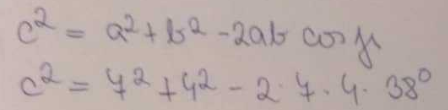 c² = a² + b² - 2ab cos γ
c² = 7² + 4² - 2 · 7 · 4 · 38°